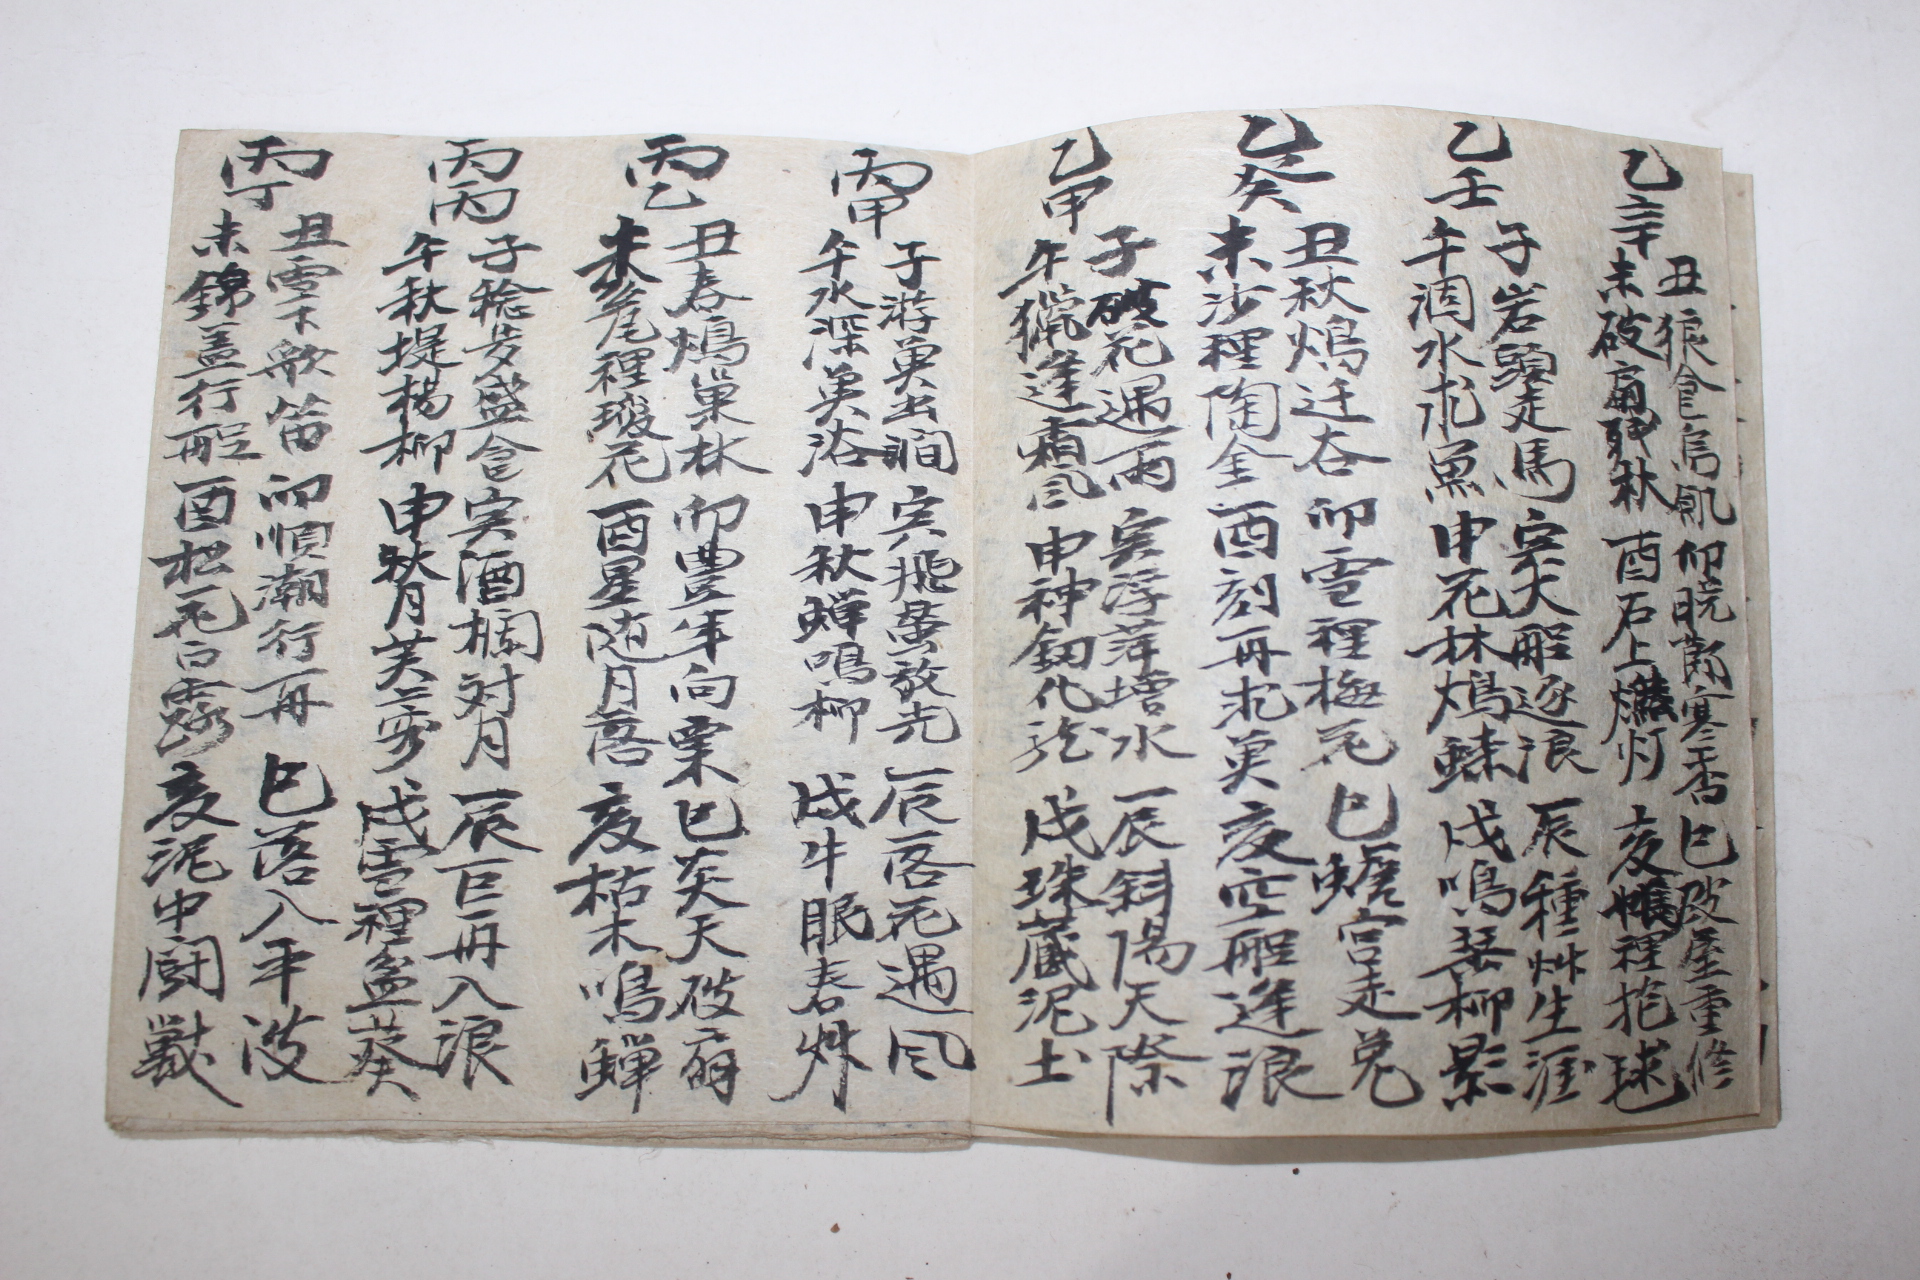 乙辛
丑狼食烏飢 卯晩菊寒香 巳改屋重修
未破扇残秋 酉石上燃灯 亥帳裡抱毬
乙壬
子岩頭走馬 寅大船逐浪 辰種艸生涯
午涸水求魚 申花林鳩 戌鳴琴柳影
乙癸
丑秋鳩迁谷 卯雪裡梅花 巳蟾宮走兎
未沙裡陶金 酉刻舟求 亥空船逢浪
乙甲
子破花遇雨 寅浮萍增水 辰斜陽天際
午獵逢霜風 申神釰化 戌珠藏泥土
丙甲
子游魚出澗 寅飛螢放光 辰落花遇风
午水深魚浴 申秋蝉鳴柳 戌牛眠春艸
丙乙
丑春鳩巢林 卯豊年向栗 巳炎天破扇
未裡花 酉星随月落 亥枯木鳴蟬
丙丙
子稔步盛倉 寅酒欄对月 辰巨舟入浪
午秋堤楊柳 申秋月芙蓉 戌雪裡盆葵
丙丁
丑雪下歌笛 卯順潮行舟 巳落入平波
未錦盖行船 酉松花白露 亥泥中閗獣